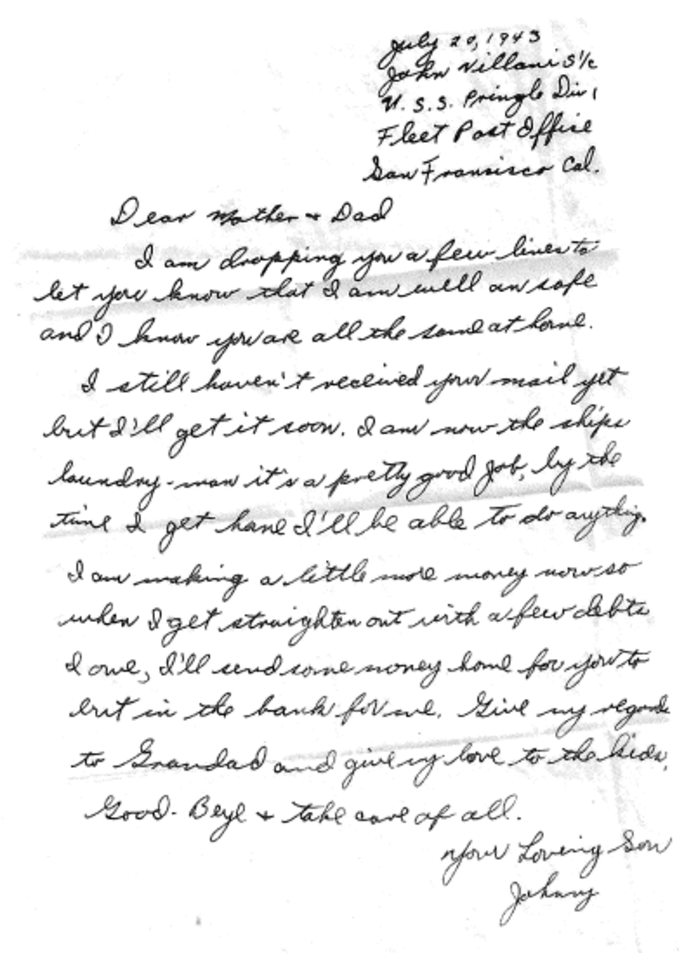 July 20, 1943
John Villani S1/c
U.S.S. Pringle Div 1
Fleet Post Office
San Fransisco Cal.
Dear Mother + Dad
I am dropping you a few lines to
let you know that I am well an safe
and I know you are all the same at home.
I still haven't received your mail yet
but I'll get it soon. I am now the ships
laundry-man it's a pretty good job, by the
time I get home I'll be able to do anything.
I am making a little more money now so
when I get straighten out with a few debts
I owe, I'll send some money home for you to
put in the bank for me. Give my regards
to Grandad and give my love to the kids.
Good-Beye + take care of all.
Your Loving Son
Johnny